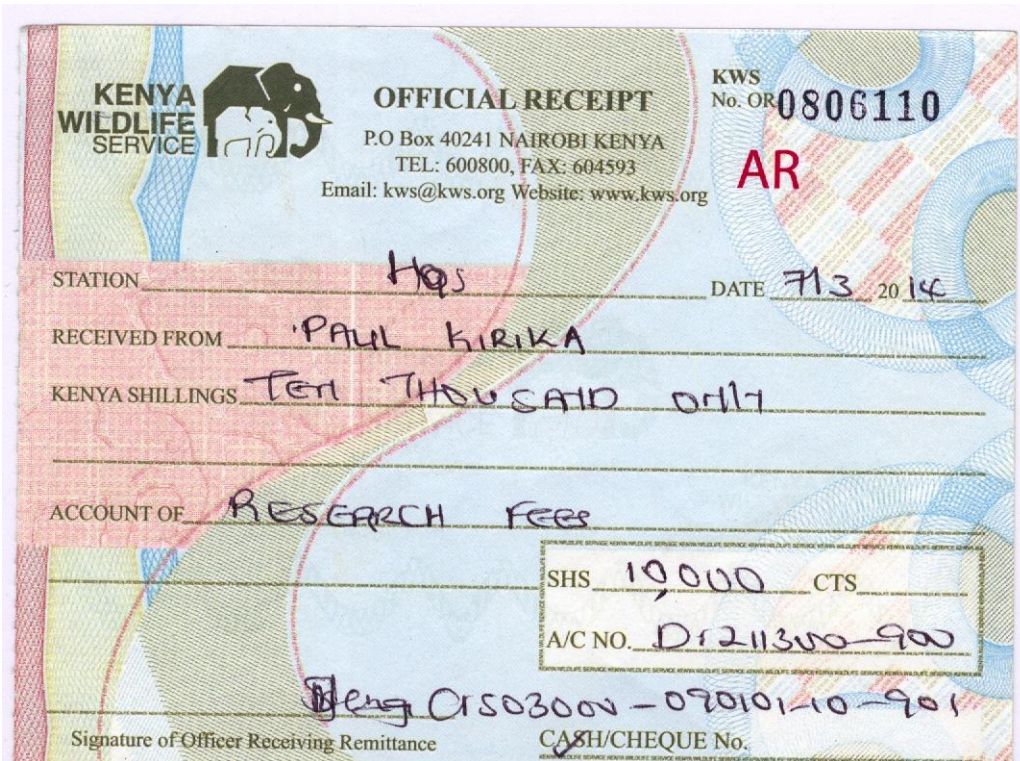 KENYA
WILDLIFE
SERVICE
OFFICIAL RECEIPT
P.O Box 40241 NAIROBI KENYA
TEL: 600800, FAX: 604593
Email: kws@kws.org Website: www.kws.org
KWS
No. OR 0806110
AR
STATION HQs
DATE 7/3 2014
RECEIVED FROM PAUL KIRIKA
KENYA SHILLINGS TEN THOUSAND ONLY
ACCOUNT OF RESEARCH FEES
SHS 10,000 CTS
A/C NO. Dr 211300-900
Cr 50300v-090101-10-901
Signature of Officer Receiving Remittance
CASH/CHEQUE No.